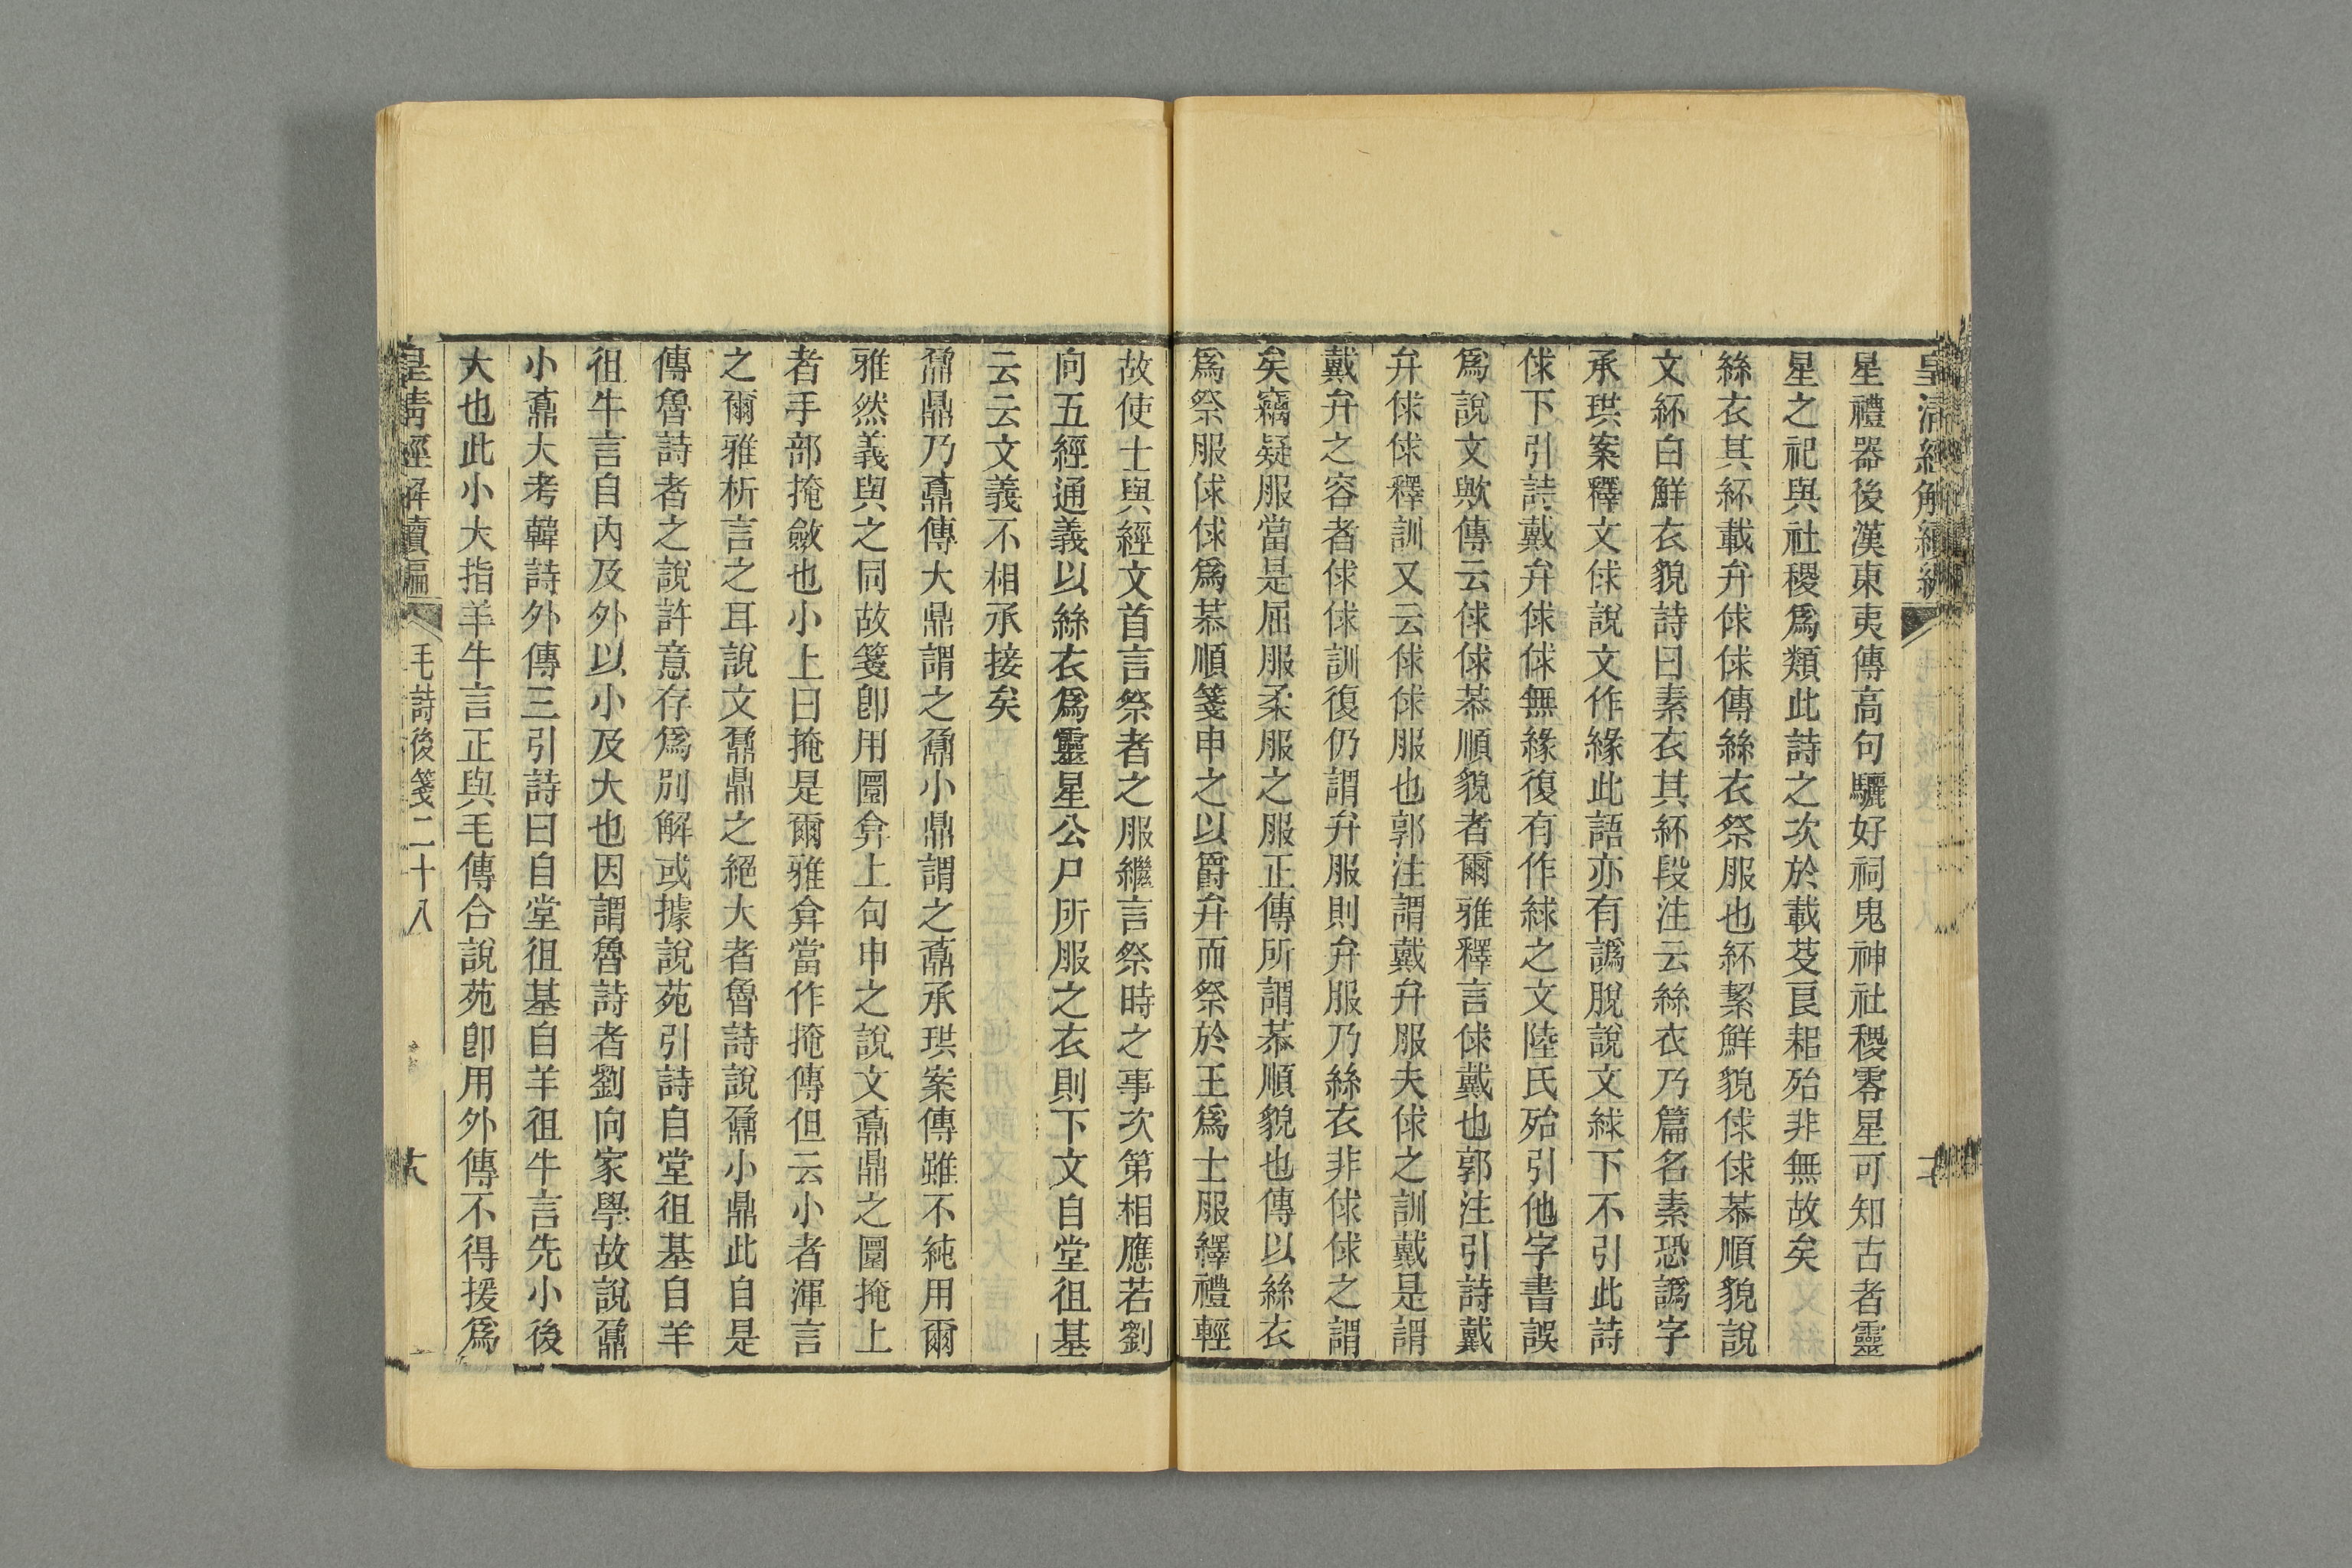 皇清經解續編
星禮器後漢東夷傳高句驪好祠鬼神社稷零星可知古者靈
星之祀與社稷爲類此詩之次於載芟良耜殆非無故矣
絲衣其紑載弁俅俅傳絲衣祭服也紑絜鮮貌俅俅恭順貌說
文紑白鮮衣貌詩曰素衣其紑段注云絲衣乃篇名素恐譌字
承珙案釋文俅說文作絿此語亦有譌脫說文絿下不引此詩
俅下引詩戴弁俅俅無緣復有作絿之文陸氏殆引他字書誤
爲說文歟傳云俅俅恭順貌者爾雅釋言俅戴也郭注引詩戴
弁俅俅釋訓又云俅俅服也郭注謂戴弁服夫俅之訓戴是謂
戴弁之容者俅俅訓復仍謂弁服則弁服乃絲衣非俅俅之謂
矣竊疑服當是屈服柔服之服正傳所謂恭順貌也傳以絲衣
爲祭服俅俅爲恭順箋申之以爵弁而祭於王爲士服繹禮輕
故使士與經文首言祭者之服繼言祭時之事次第相應若劉
向五經通義以絲衣爲靈星公尸所服之衣則下文自堂徂基
云云文義不相承接矣
鼐鼎乃鼒傳大鼎謂之鼐小鼎謂之鼒承珙案傳雖不純用爾
雅然義與之同故箋卽用圜弇上句申之說文鼒鼎之圜掩上
者手部掩斂也小上曰掩是爾雅弇當作掩傳但云小者渾言
之爾雅析言之耳說文鼐鼎之絕大者魯詩說鼐小鼎此自是
傳魯詩者之說許意存爲別解或據說苑引詩自堂徂基自羊
徂牛言自內及外以小及大也因謂魯詩者劉向家學故說鼐
小鼒大考韓詩外傳三引詩曰自堂徂基自羊徂牛言先小後
大也此小大指羊牛言正與毛傳合說苑卽用外傳不得援爲
皇清經解續編 毛詩後箋二十八